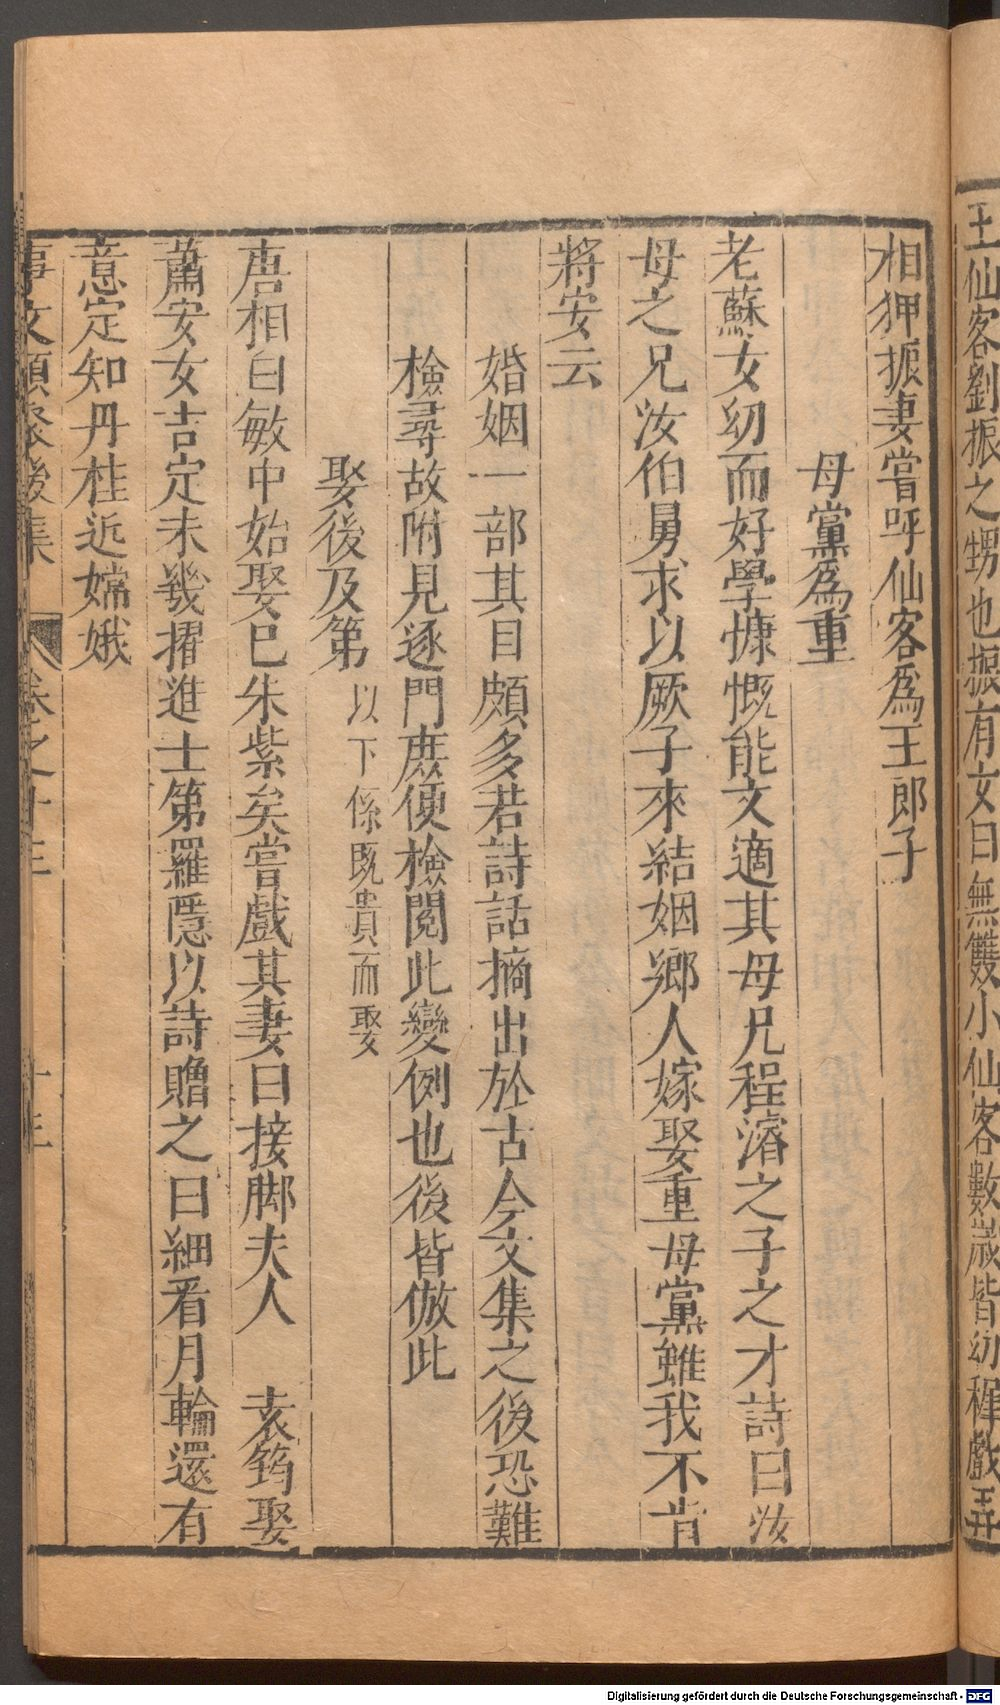 王仙客劉振之甥也振有女曰無雙小仙客數歲皆幼稚戲弄
相狎振妻嘗呼仙客爲王郎子
母黨爲重
老蘇女幼而好學慷慨能文適其母兄程濬之子之才詩曰汝
母之兄汝伯舅求以厥子來結姻鄉人嫁娶重母黨雖我不肯
將安云
婚姻一部其目頗多若詩話摘出於古今文集之後恐難
檢尋故附見逐門庶便檢閱此變例也後皆倣此
娶後及第 以下係既貴而娶
唐相白敏中始娶已朱紫矣嘗戲其妻曰接脚夫人 袁筠娶
蕭安女吉定未幾擢進士第羅隱以詩贈之曰細看月輪還有
意定知丹桂近嫦娥
事文類聚後集 卷之十三 十三
Digitalisierung gefördert durch die Deutsche Forschungsgemeinschaft - DFG